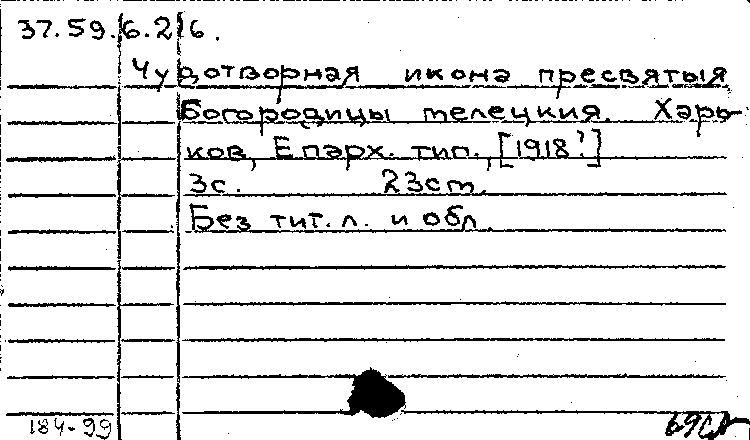 37.59.6.216.
Чудотворная икона пресвятыя
Богородицы телецкия. Харь-
ков, Епарх. тип., [1918?]
3с. 23см.
Без тит. л. и обл.
184-99